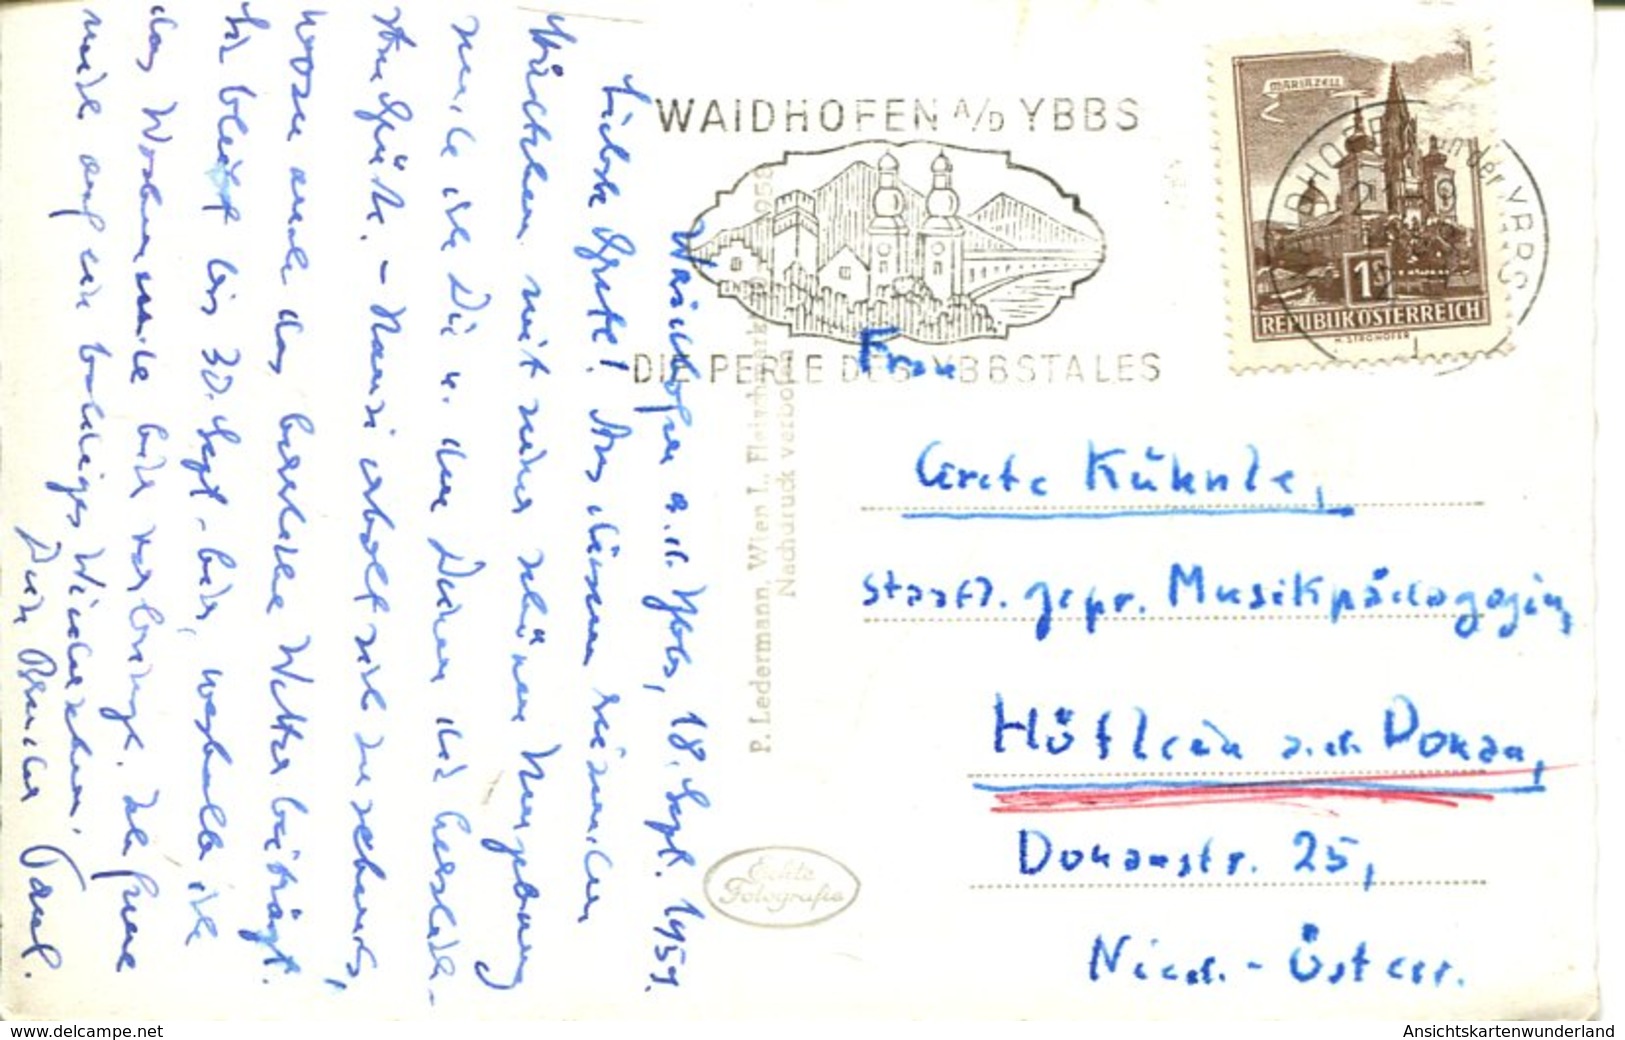 WAIDHOFEN A/D YBBS
DIE PERLE DES YBBSTALES
MARIAZELL
1S
REPUBLIK ÖSTERREICH
H. STROHOFER
an der YBBS
P. Ledermann, Wien I., Fleischmarkt
Nachdruck verboten
Echte
Fotografie
Waidhofen a.d. Ybbs, 18. Sept. 1959.
Liebe Grete! Aus diesem reizenden
Städtchen mit seiner schönen Umgebung
sende ich Dir u. den Deinen die herzlich-
sten Grüße. - Nanni erholt sich zusehends,
wozu auch das herrliche Wetter beiträgt.
Sie bleibt bis 30. Sept. hier, weshalb ich
das Wochenende hier verbringe. Ich freue
mich auf ein baldiges Wiedersehen.
Dein Bruder Paul.
Frau
Grete Kühnle,
staatl. gepr. Musikpädagogin,
Höflein a.d. Donau,
Donaustr. 25,
Nied.-Österr.
www.delcampe.net
Ansichtskartenwunderland